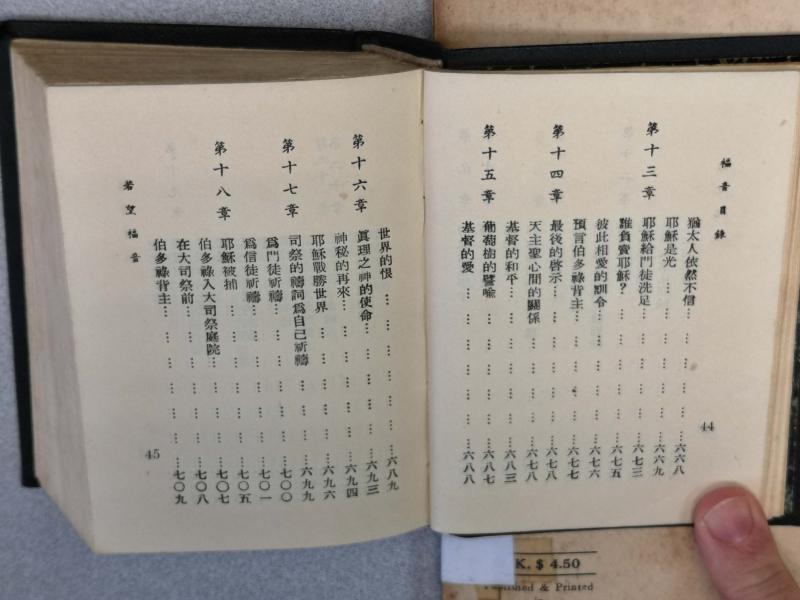 福音目錄
猶太人依然不信… … … … … …六六八
耶穌是光 … … … … … … …六六九
第十三章
耶穌給門徒洗足… … … … … …六七三
誰負賣耶穌? … … … … … …六七五
彼此相愛的訓令… … … … … …六七六
預言伯多祿背主… … … … … …六七七
第十四章
最後的啓示 … … … … … …六七八
天主聖心間的關係 … … … … …六七八
基督的和平 … … … … … …六八三
第十五章
葡萄樹的譬喻 … … … … … …六八七
基督的愛 … … … … … … …六八八
44
世界的恨 … … … … … … …六八九
第十六章
眞理之神的使命… … … … … …六九三
神秘的再來 … … … … … …六九四
耶穌戰勝世界 … … … … … …六九六
第十七章
司祭的禱詞爲自己祈禱 … … … …六九九
爲門徒祈禱 … … … … … …七〇〇
爲信徒祈禱 … … … … … …七〇一
第十八章
耶穌被捕 … … … … … … …七〇五
伯多祿入大司祭庭院… … … … …七〇七
在大司祭前 … … … … … …七〇八
伯多祿背主 … … … … … …七〇九
若望福音
45
K. $ 4.50
Published & Printed